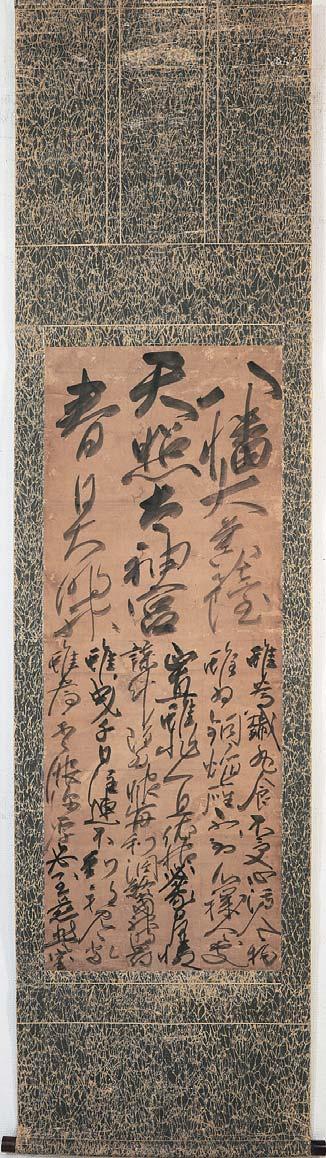 八幡大菩薩
天照大神宮
春日大明神
雖為鐵丸食不受心汚人物
雖為銅焔座不到心穢人處
正直雖非一旦依怙蒙日月憐
謀計雖為眼前利潤當神罰
雖曳千日注連不到邪見家
雖為重服深厚赴慈悲室